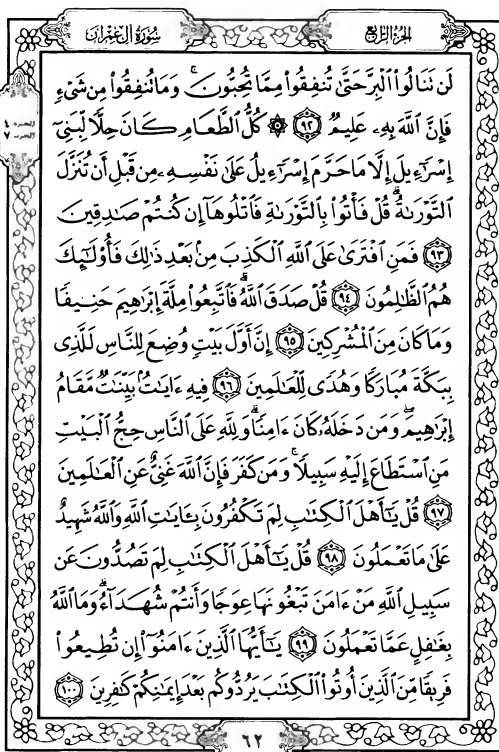 سُورَةُ آلِ عِمْرَانَ
الجُزءُ الرَّابِعُ
لَن تَنَالُوا۟ ٱلْبِرَّ حَتَّىٰ تُنفِقُوا۟ مِمَّا تُحِبُّونَ ۚ وَمَا تُنفِقُوا۟ مِن شَىْءٍ
فَإِنَّ ٱللَّهَ بِهِۦ عَلِيمٌ ﴿٩٢﴾ ۞ كُلُّ ٱلطَّعَامِ كَانَ حِلًّا لِّبَنِىٓ
إِسْرَٰٓءِيلَ إِلَّا مَا حَرَّمَ إِسْرَٰٓءِيلُ عَلَىٰ نَفْسِهِۦ مِن قَبْلِ أَن تُنَزَّلَ
ٱلتَّوْرَىٰةُ ۗ قُلْ فَأْتُوا۟ بِٱلتَّوْرَىٰةِ فَٱتْلُوهَآ إِن كُنتُمْ صَـٰدِقِينَ
﴿٩٣﴾ فَمَنِ ٱفْتَرَىٰ عَلَى ٱللَّهِ ٱلْكَذِبَ مِنۢ بَعْدِ ذَٰلِكَ فَأُو۟لَـٰٓئِكَ
هُمُ ٱلظَّـٰلِمُونَ ﴿٩٤﴾ قُلْ صَدَقَ ٱللَّهُ ۗ فَٱتَّبِعُوا۟ مِلَّةَ إِبْرَٰهِيمَ حَنِيفًا
وَمَا كَانَ مِنَ ٱلْمُشْرِكِينَ ﴿٩٥﴾ إِنَّ أَوَّلَ بَيْتٍ وُضِعَ لِلنَّاسِ لَلَّذِى
بِبَكَّةَ مُبَارَكًا وَهُدًى لِّلْعَـٰلَمِينَ ﴿٩٦﴾ فِيهِ ءَايَـٰتٌۢ بَيِّنَـٰتٌ مَّقَامُ
إِبْرَٰهِيمَ ۖ وَمَن دَخَلَهُۥ كَانَ ءَامِنًا ۗ وَلِلَّهِ عَلَى ٱلنَّاسِ حِجُّ ٱلْبَيْتِ
مَنِ ٱسْتَطَاعَ إِلَيْهِ سَبِيلًا ۚ وَمَن كَفَرَ فَإِنَّ ٱللَّهَ غَنِىٌّ عَنِ ٱلْعَـٰلَمِينَ
﴿٩٧﴾ قُلْ يَـٰٓأَهْلَ ٱلْكِتَـٰبِ لِمَ تَكْفُرُونَ بِـَٔايَـٰتِ ٱللَّهِ وَٱللَّهُ شَهِيدٌ
عَلَىٰ مَا تَعْمَلُونَ ﴿٩٨﴾ قُلْ يَـٰٓأَهْلَ ٱلْكِتَـٰبِ لِمَ تَصُدُّونَ عَن
سَبِيلِ ٱللَّهِ مَنْ ءَامَنَ تَبْغُونَهَا عِوَجًا وَأَنتُمْ شُهَدَآءُ ۗ وَمَا ٱللَّهُ
بِغَـٰفِلٍ عَمَّا تَعْمَلُونَ ﴿٩٩﴾ يَـٰٓأَيُّهَا ٱلَّذِينَ ءَامَنُوٓا۟ إِن تُطِيعُوا۟
فَرِيقًا مِّنَ ٱلَّذِينَ أُوتُوا۟ ٱلْكِتَـٰبَ يَرُدُّوكُم بَعْدَ إِيمَـٰنِكُمْ كَـٰفِرِينَ ﴿١٠٠﴾
٦٢